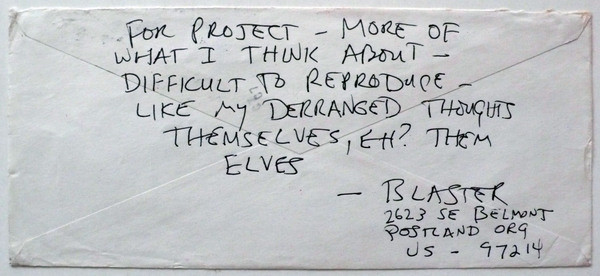 FOR PROJECT – MORE OF
WHAT I THINK ABOUT –
DIFFICULT TO REPRODUCE –
LIKE MY DERRANGED THOUGHTS
THEMSELVES, EH? THEM
ELVES
– BLASTER
2623 SE BELMONT
POSTLAND ORG
US – 97214